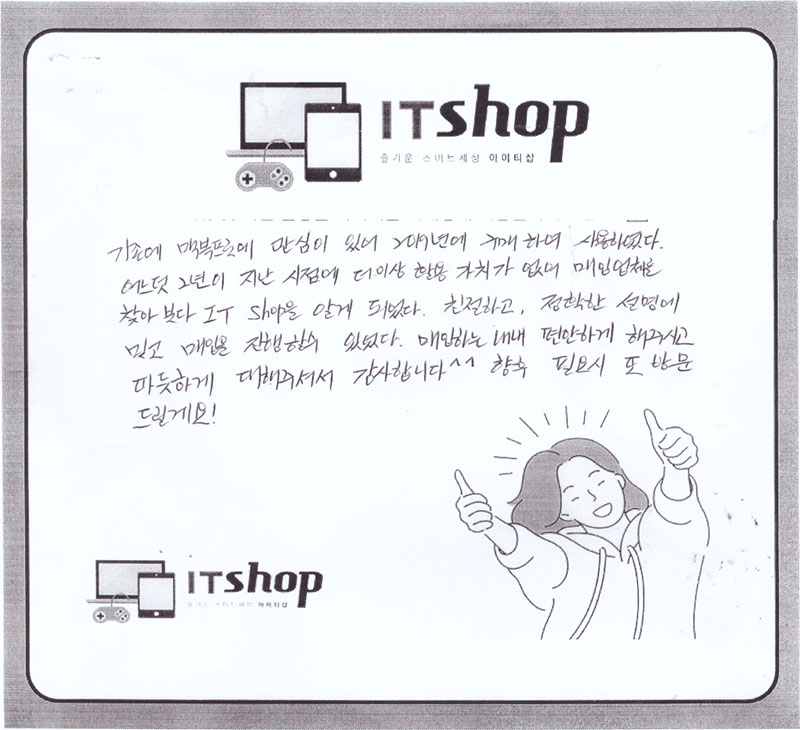 ITshop
즐거운 스마트세상 아이티샵
기존에 맥북프로에 관심이 있어 2019년에 구매하여 사용하였다.
어느덧 2년이 지난 시점에 더이상 활용가치가 없어 매입업체를
찾아보다 IT Shop을 알게 되었다. 친절하고, 정확한 설명에
믿고 매입을 진행할수 있었다. 매입하는 내내 편안하게 해주시고
따듯하게 대해주셔서 감사합니다^^ 향후 필요시 또 방문
드릴게요!
ITshop
즐거운 스마트세상 아이티샵